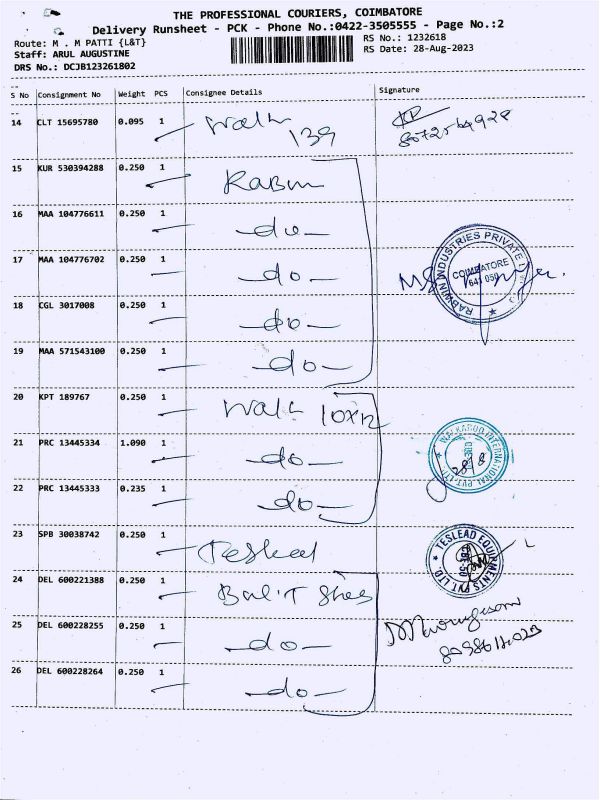 THE PROFESSIONAL COURIERS, COIMBATORE
Delivery Runsheet - PCK - Phone No.:0422-3505555 - Page No.:2
Route: M . M PATTI {L&T}
RS No.: 1232618
Staff: ARUL AUGUSTINE
RS Date: 28-Aug-2023
DRS No.: DCJB123261802
S No Consignment No Weight PCS Consignee Details Signature
14 CLT 15695780 0.095 1 139
15 KUR 530394288 0.250 1 Rabwin
16 MAA 104776611 0.250 1 -do-
17 MAA 104776702 0.250 1 -do-
RABWIN INDUSTRIES PRIVATE
COIMBATORE
641 050
18 CGL 3017008 0.250 1 -do-
19 MAA 571543100 0.250 1 -do-
20 KPT 189767 0.250 1
21 PRC 13445334 1.090 1 -do-
WALKAROO INTERNATIONAL PVT. LTD
28/8
22 PRC 13445333 0.235 1 -do-
23 SPB 30038742 0.250 1 Teslead
TESLEAD EQUIPMENTS PVT. LTD
24 DEL 600221388 0.250 1
25 DEL 600228255 0.250 1 -do-
26 DEL 600228264 0.250 1 -do-